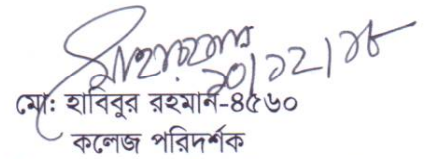 ১০/১২/১৮
মো: হাবিবুর রহমান-৪৫৬০
কলেজ পরিদর্শক